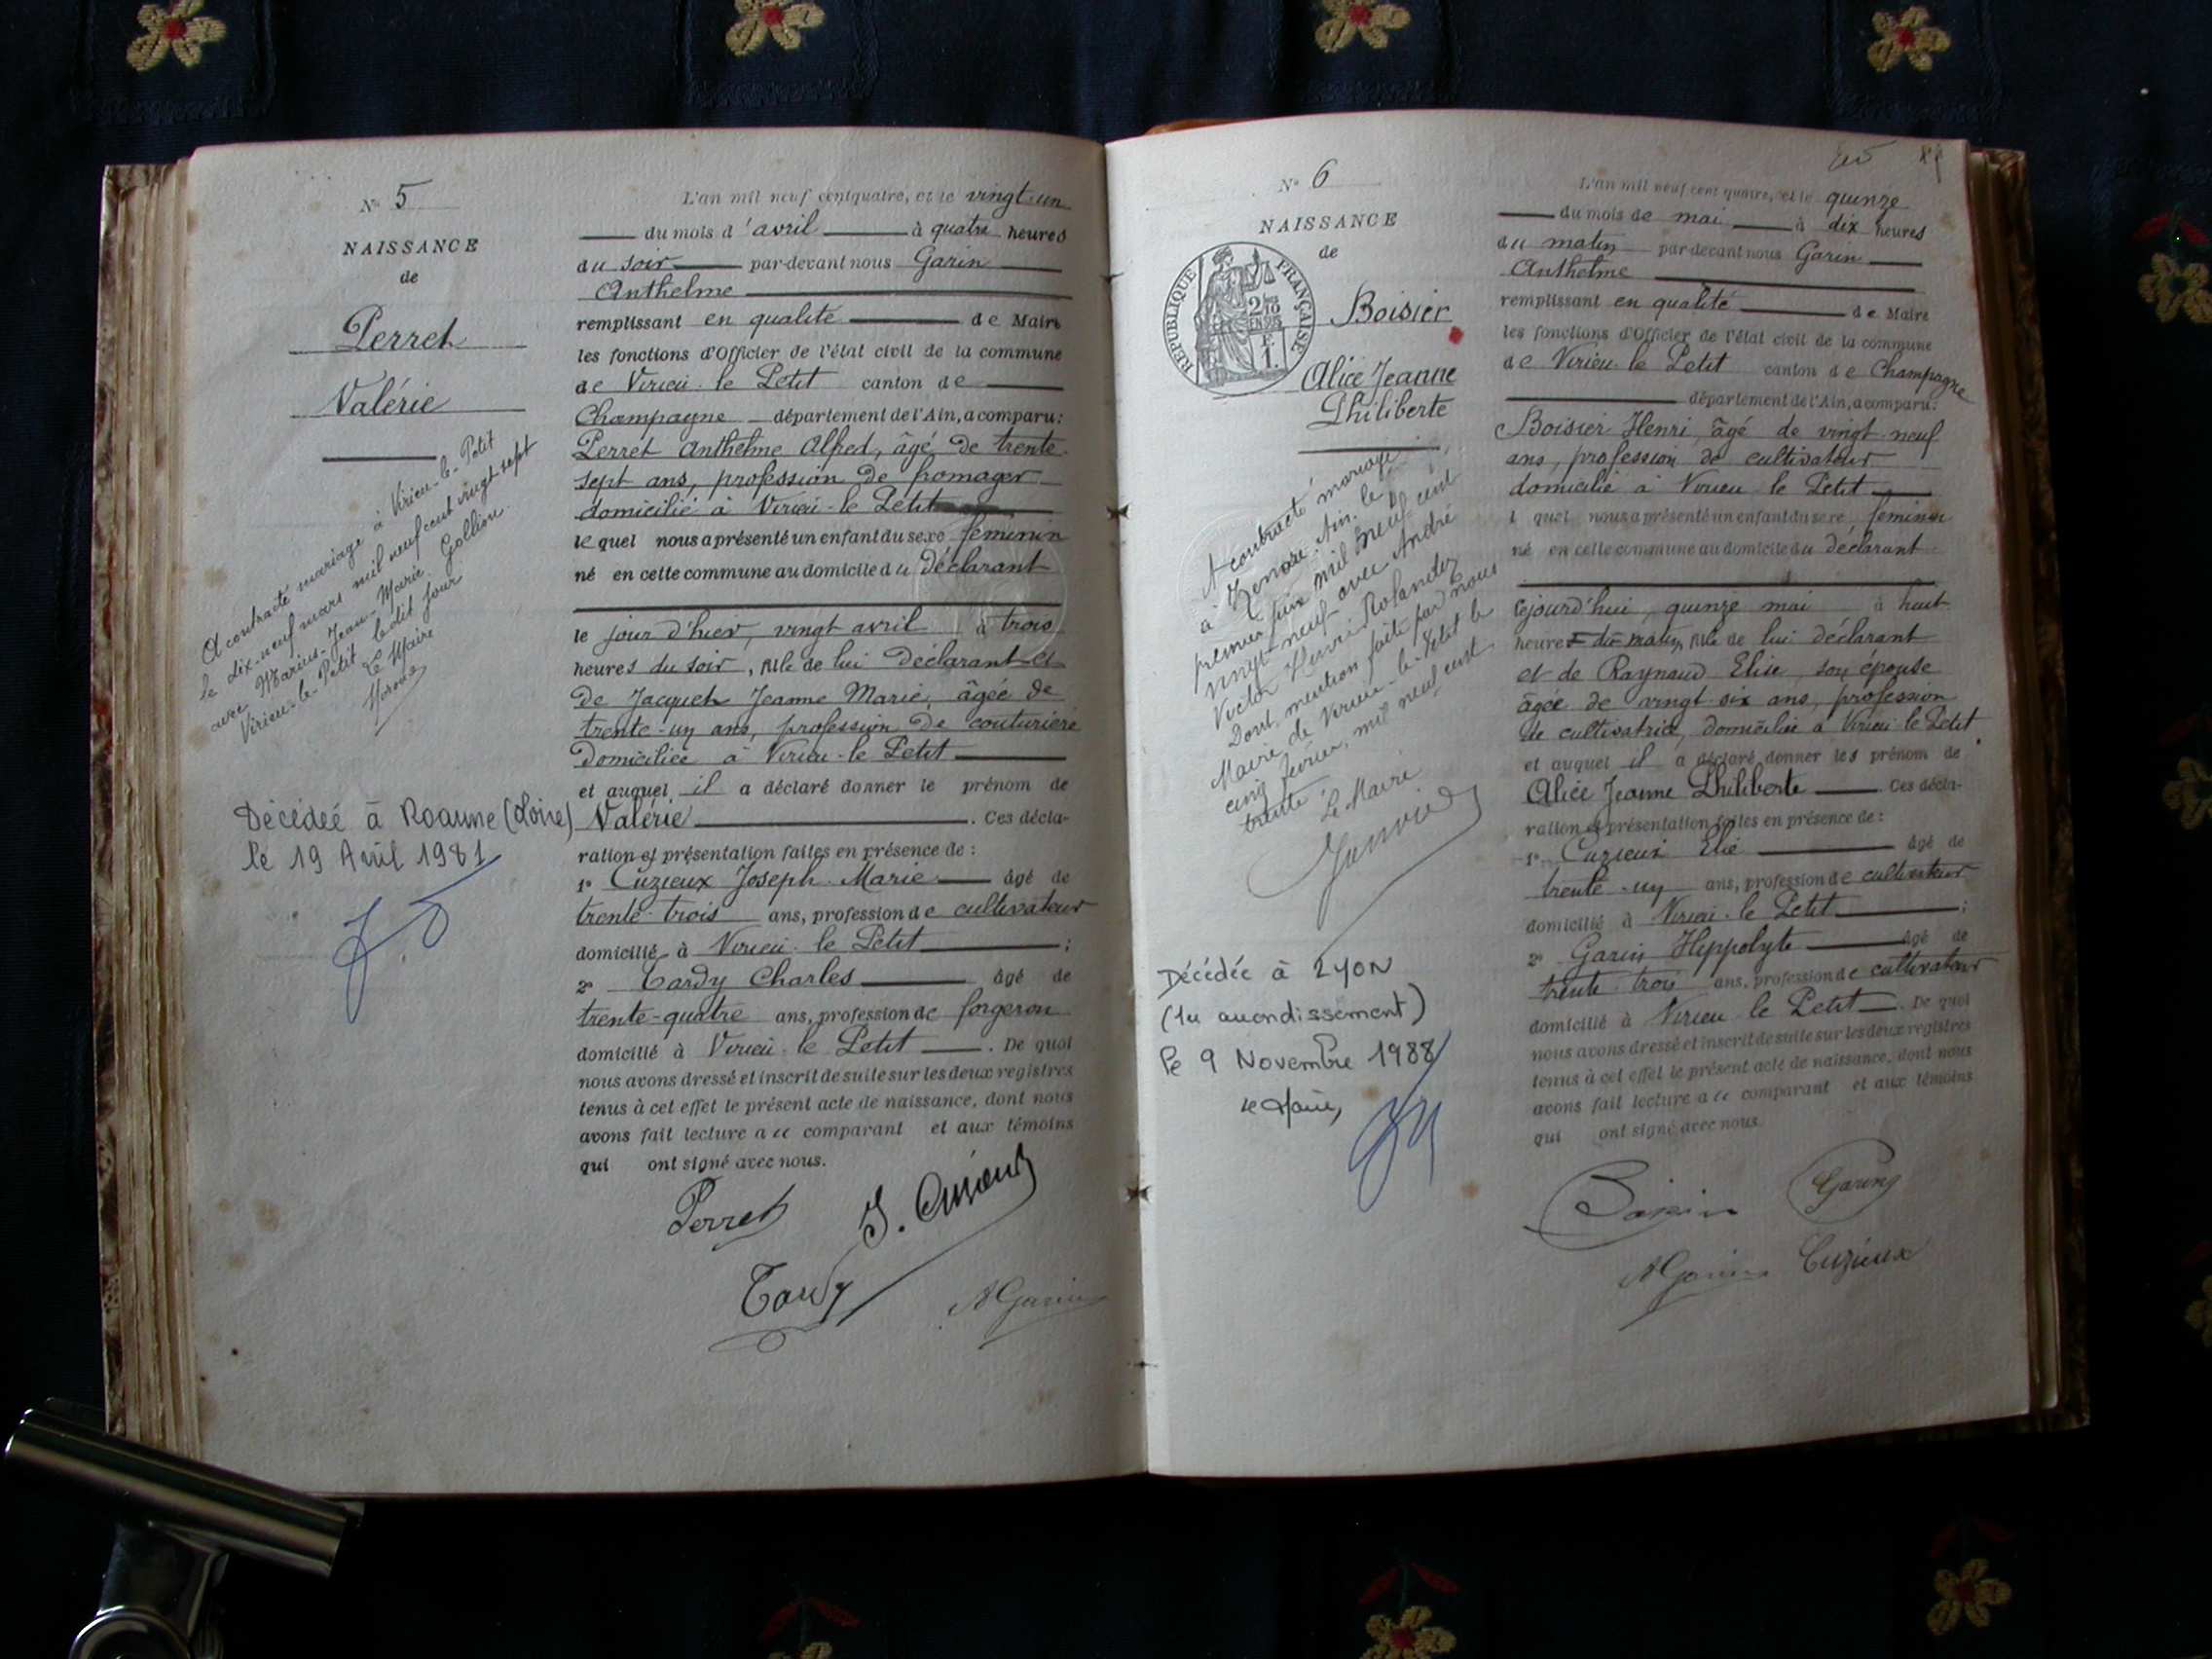 N° 5
NAISSANCE
de
Perret
Valérie
A contracté mariage à Virieu-le-Petit
le dix-neuf mars mil neuf cent vingt-sept
avec Marius-Jean-Marie Gollion.
Virieu-le-Petit ledit jour
Le Maire
Décédée à Roanne (Loire)
le 19 Avril 1981
L'an mil neuf cent quatre, et le vingt-un
du mois d'avril à quatre heures
du soir par-devant nous Garin
Anthelme
remplissant en qualité de Maire
les fonctions d'Officier de l'état civil de la commune
de Virieu-le Petit canton de
Champagne département de l'Ain, a comparu:
Perret Anthelme Alfred, âgé de trente-
sept ans, profession de fromager
domicilié à Virieu-le Petit
lequel nous a présenté un enfant du sexe féminin
né en cette commune au domicile du déclarant
le jour d'hier, vingt avril à trois
heures du soir, fille de lui déclarant et
de Jacquet Jeanne Marie, âgée de
trente-un ans, profession de couturière
domiciliée à Virieu-le Petit
et auquel il a déclaré donner le prénom de
Valérie. Ces décla-
ration et présentation faites en présence de:
1° Cuzieux Joseph-Marie âgé de
trente-trois ans, profession de cultivateur
domicilié à Virieu-le Petit;
2° Tardy Charles âgé de
trente-quatre ans, profession de forgeron
domicilié à Virieu-le Petit. De quoi
nous avons dressé et inscrit de suite sur les deux registres
tenus à cet effet le présent acte de naissance, dont nous
avons fait lecture a ce comparant et aux témoins
qui ont signé avec nous.
Perret J. Cuzieux
Tardy A Garin
N° 6
NAISSANCE
de
REPUBLIQUE FRANÇAISE
2/10
EN SUS
F.
1.
Boisier
Alice Jeanne
Philiberte
A contracté mariage
à Ain, le
premier juin mil neuf cent
vingt-neuf avec André
Victor Henri
Dont mention faite par nous
Maire de Virieu-le-Petit le
cinq février, mil neuf cent
trente.
Le Maire
Décédée à LYON
(1er arrondissement)
le 9 Novembre 1988
Le Maire,
L'an mil neuf cent quatre, et le quinze
du mois de mai à dix heures
du matin par-devant nous Garin
Anthelme
remplissant en qualité de Maire
les fonctions d'Officier de l'état civil de la commune
de Virieu-le Petit canton de Champagne
département de l'Ain, a comparu:
Boisier Henri, âgé de vingt-neuf
ans, profession de cultivateur
domicilié à Virieu-le Petit
lequel nous a présenté un enfant du sexe féminin
né en cette commune au domicile du déclarant
cejourd'hui, quinze mai à huit
heures du matin, fille de lui déclarant
et de Raynaud Elise, son épouse
âgée de vingt-six ans, profession
de cultivatrice, domiciliée à Virieu-le Petit
et auquel il a déclaré donner les prénom de
Alice Jeanne Philiberte. Ces décla-
ration et présentation faites en présence de:
1° Cuzieux Elie âgé de
trente-un ans, profession de cultivateur
domicilié à Virieu-le Petit;
2° Garin Hippolyte âgé de
trente-trois ans, profession de cultivateur
domicilié à Virieu-le Petit. De quoi
nous avons dressé et inscrit de suite sur les deux registres
tenus à cet effet le présent acte de naissance, dont nous
avons fait lecture a ce comparant et aux témoins
qui ont signé avec nous.
Boisier Garin
A Garin Cuzieux